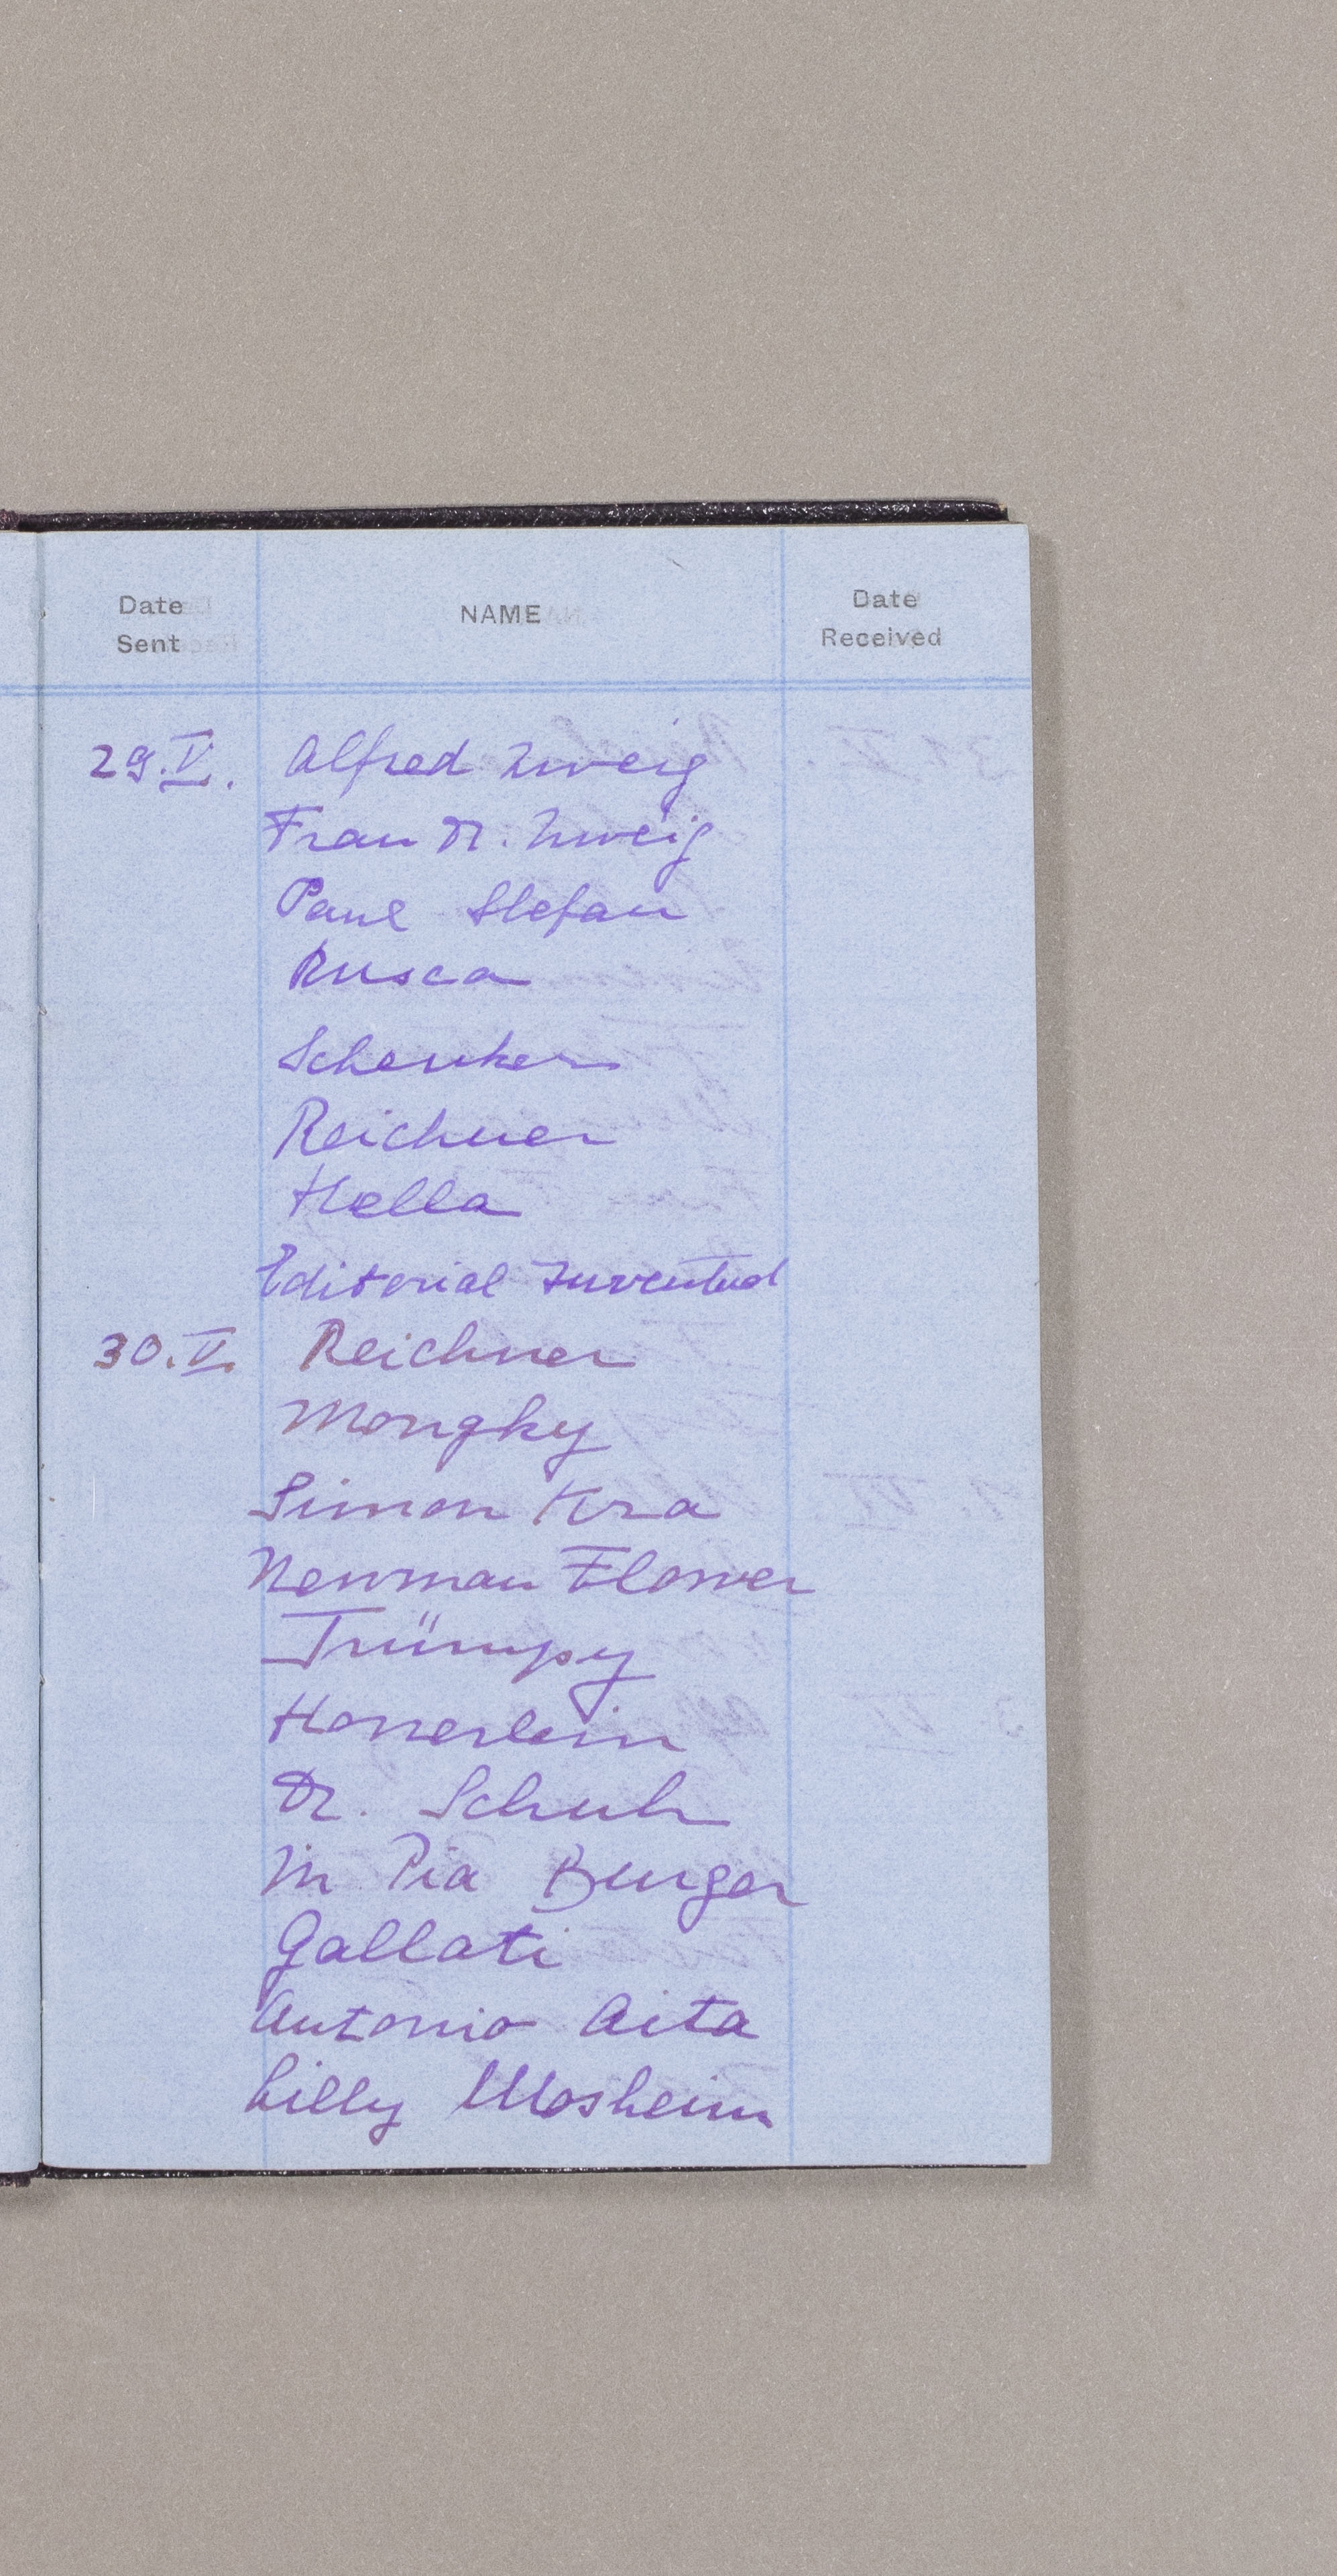 Date Sent NAME Date Received
29.V. Alfred Zweig
Frau Dr. Zweig
Paul Stefan
Rusca
Schenker
Reichner
Hella
Editorial Juventud
30.V. Reichner
Simon Kra
Newman Flower
Trümpy
Dr. Schuh
M Pia Burger
Gallati
Antonio Aita
Lilly Mosheim